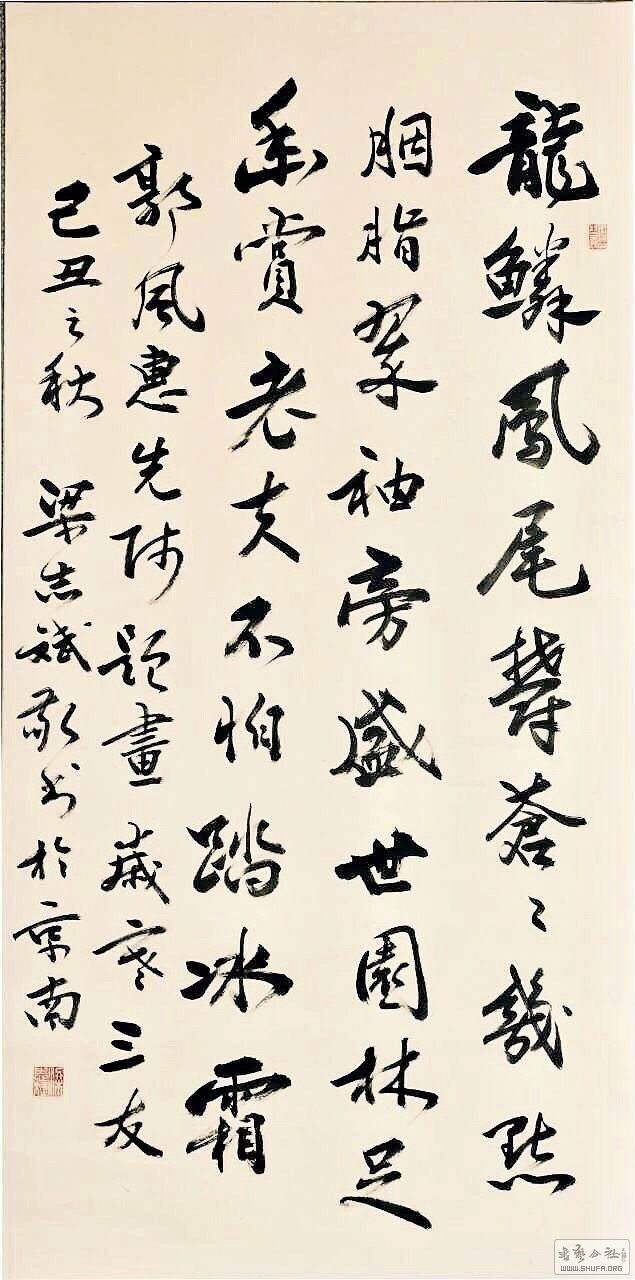 龍鱗鳳尾欝蒼〻幾點
胭脂翠袖旁盛世園林足
幽賞老夫不怕踏冰霜
郭風惠先師題畫歲寒三友
己丑之秋 梁志斌敬書於京南
書藝公社
WWW.SHUFA.ORG